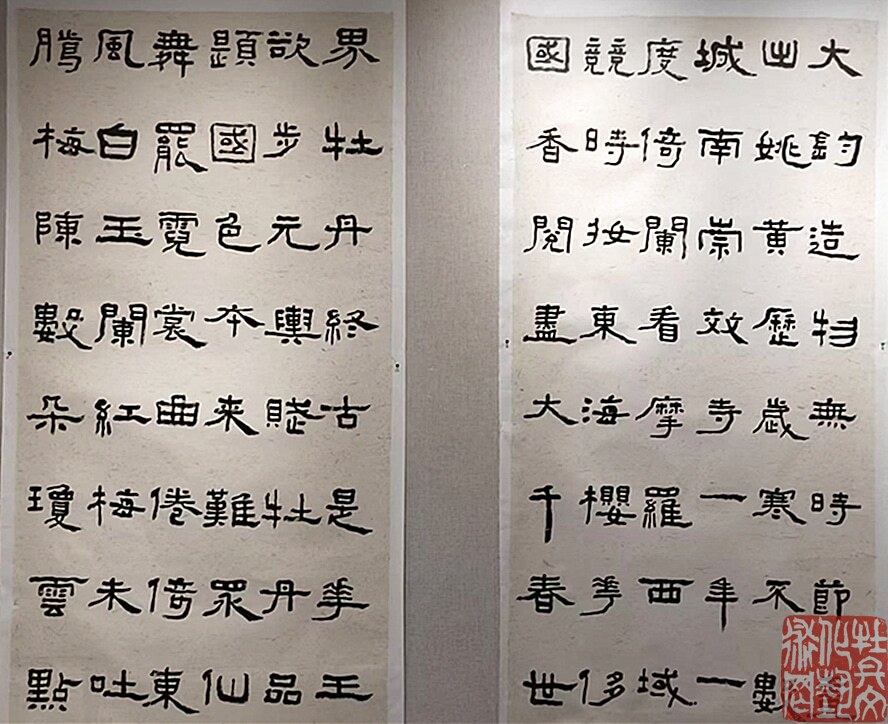 大鈞造物無時節
出姚黃歷歲寒不數
城南崇效寺一年一
度倚闌看摩羅西域
競時妝東海櫻花侈
國香閱盡大千春世
界牡丹終古是花王
欲步元輿賦牡丹品
題國色本來難眾仙
舞罷霓裳曲倦倚東
風白玉闌紅梅未吐
騰梅陳數朵瓊雲點